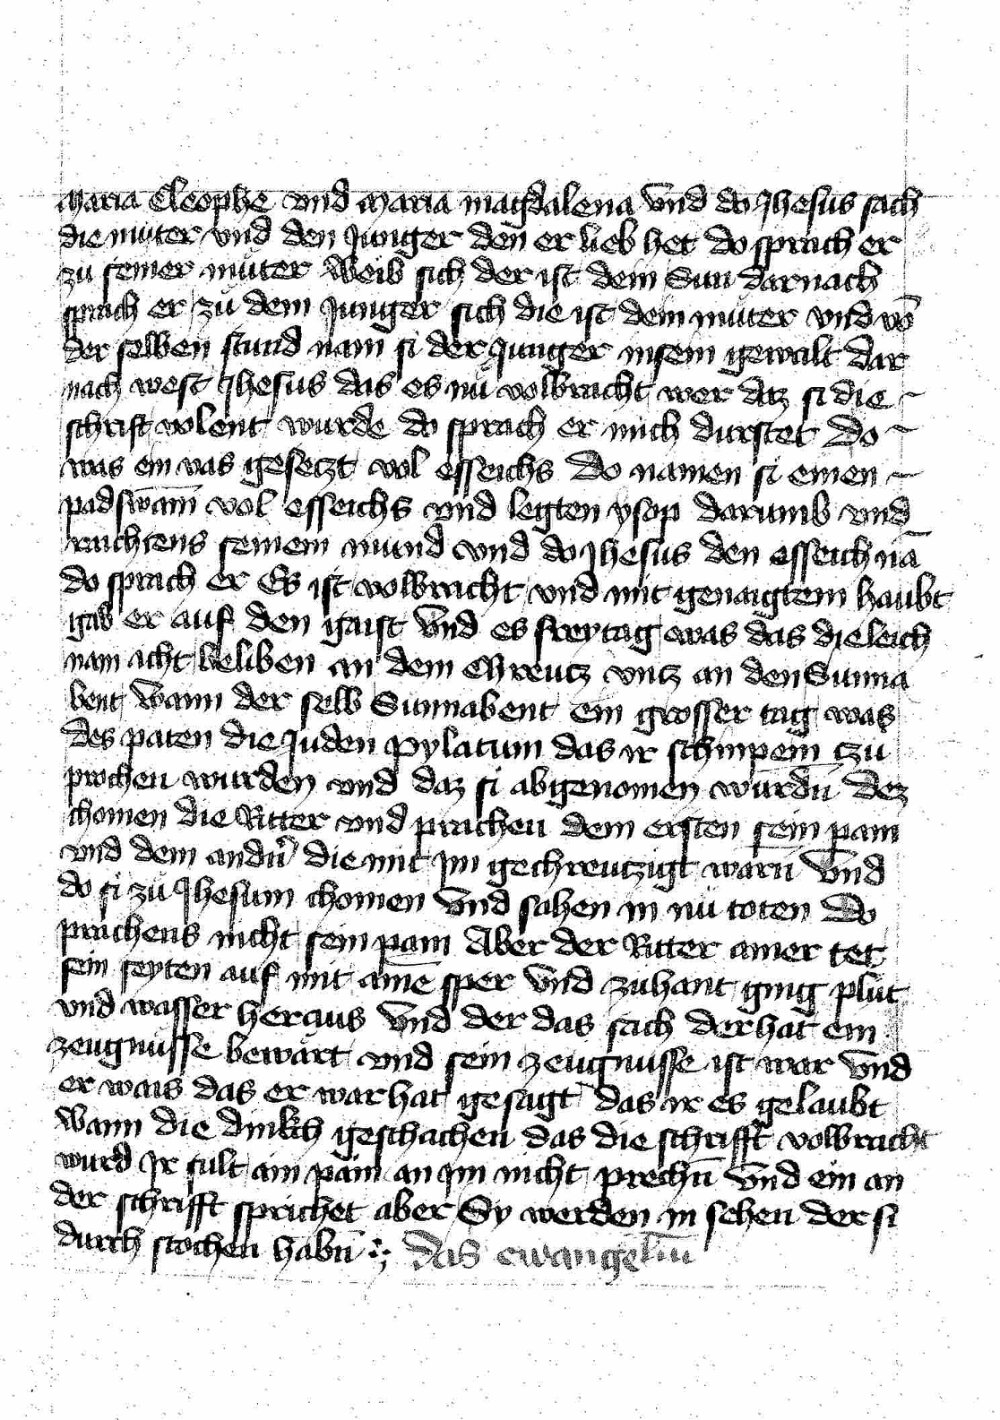 Maria Cleophe vnd Maria magdalena Vnd do Jhesus sach
die muter vnd den Junger den er lieb het do sprach er
zu seiner muter Weib sich der ist dein Sun darnach
sprach er zu dem Junger sich die ist dein muter vnd vō
der selben stund nam si der Junger in sein gewalt dar
nach west Jhesus das es nu volbracht wer daz si die
schrift volent wurde do sprach er mich durstet Do
was ein vas gesetzt vol esseichs Do namen si einen
padswam̄ vol esseichs vnd legten ysop darumb vnd
raichtens seinem mund vnd do Jhesus den esseich nā
do sprach er Es ist volbracht vnd mit genaigtem haubt
gab er auf den gaist Vnd es freytag was das die leich
nam icht beliben an dem Chreutz vntz an den Sunna
bent Wann der selb Sunnabent ein grosser tag was
des paten die Juden Pylatum das ir schinpein czu
prochen wurden vnd daz si abgenomen wurdn̄ Dez
chomen die Ritter vnd prachen dem ersten sein pain
vnd dem andn̄ die mit Im gechreutzigt warn̄ Vnd
do si zu Jhesum chomen Vnd sahen in nu toten Do
prachens nicht sein pain Aber der Ritter ainer tet
sein seyten auf mit aine sper Vnd zuhant ging plut
vnd wasser heraus Vnd der das sach der hat ein
zeugnusse bewart vnd sein zeugnusse ist war Vnd
er wais das er war hat gesagt das ir es gelaubt
Wann die dinkch geschachen das die schrifft volbracht
wurd Ir sult ain pain an im nicht prechn̄ Vnd ein an
der schrifft sprichet aber Sy werden in sehen der si
durch stochen habn̄ das ewangeliū